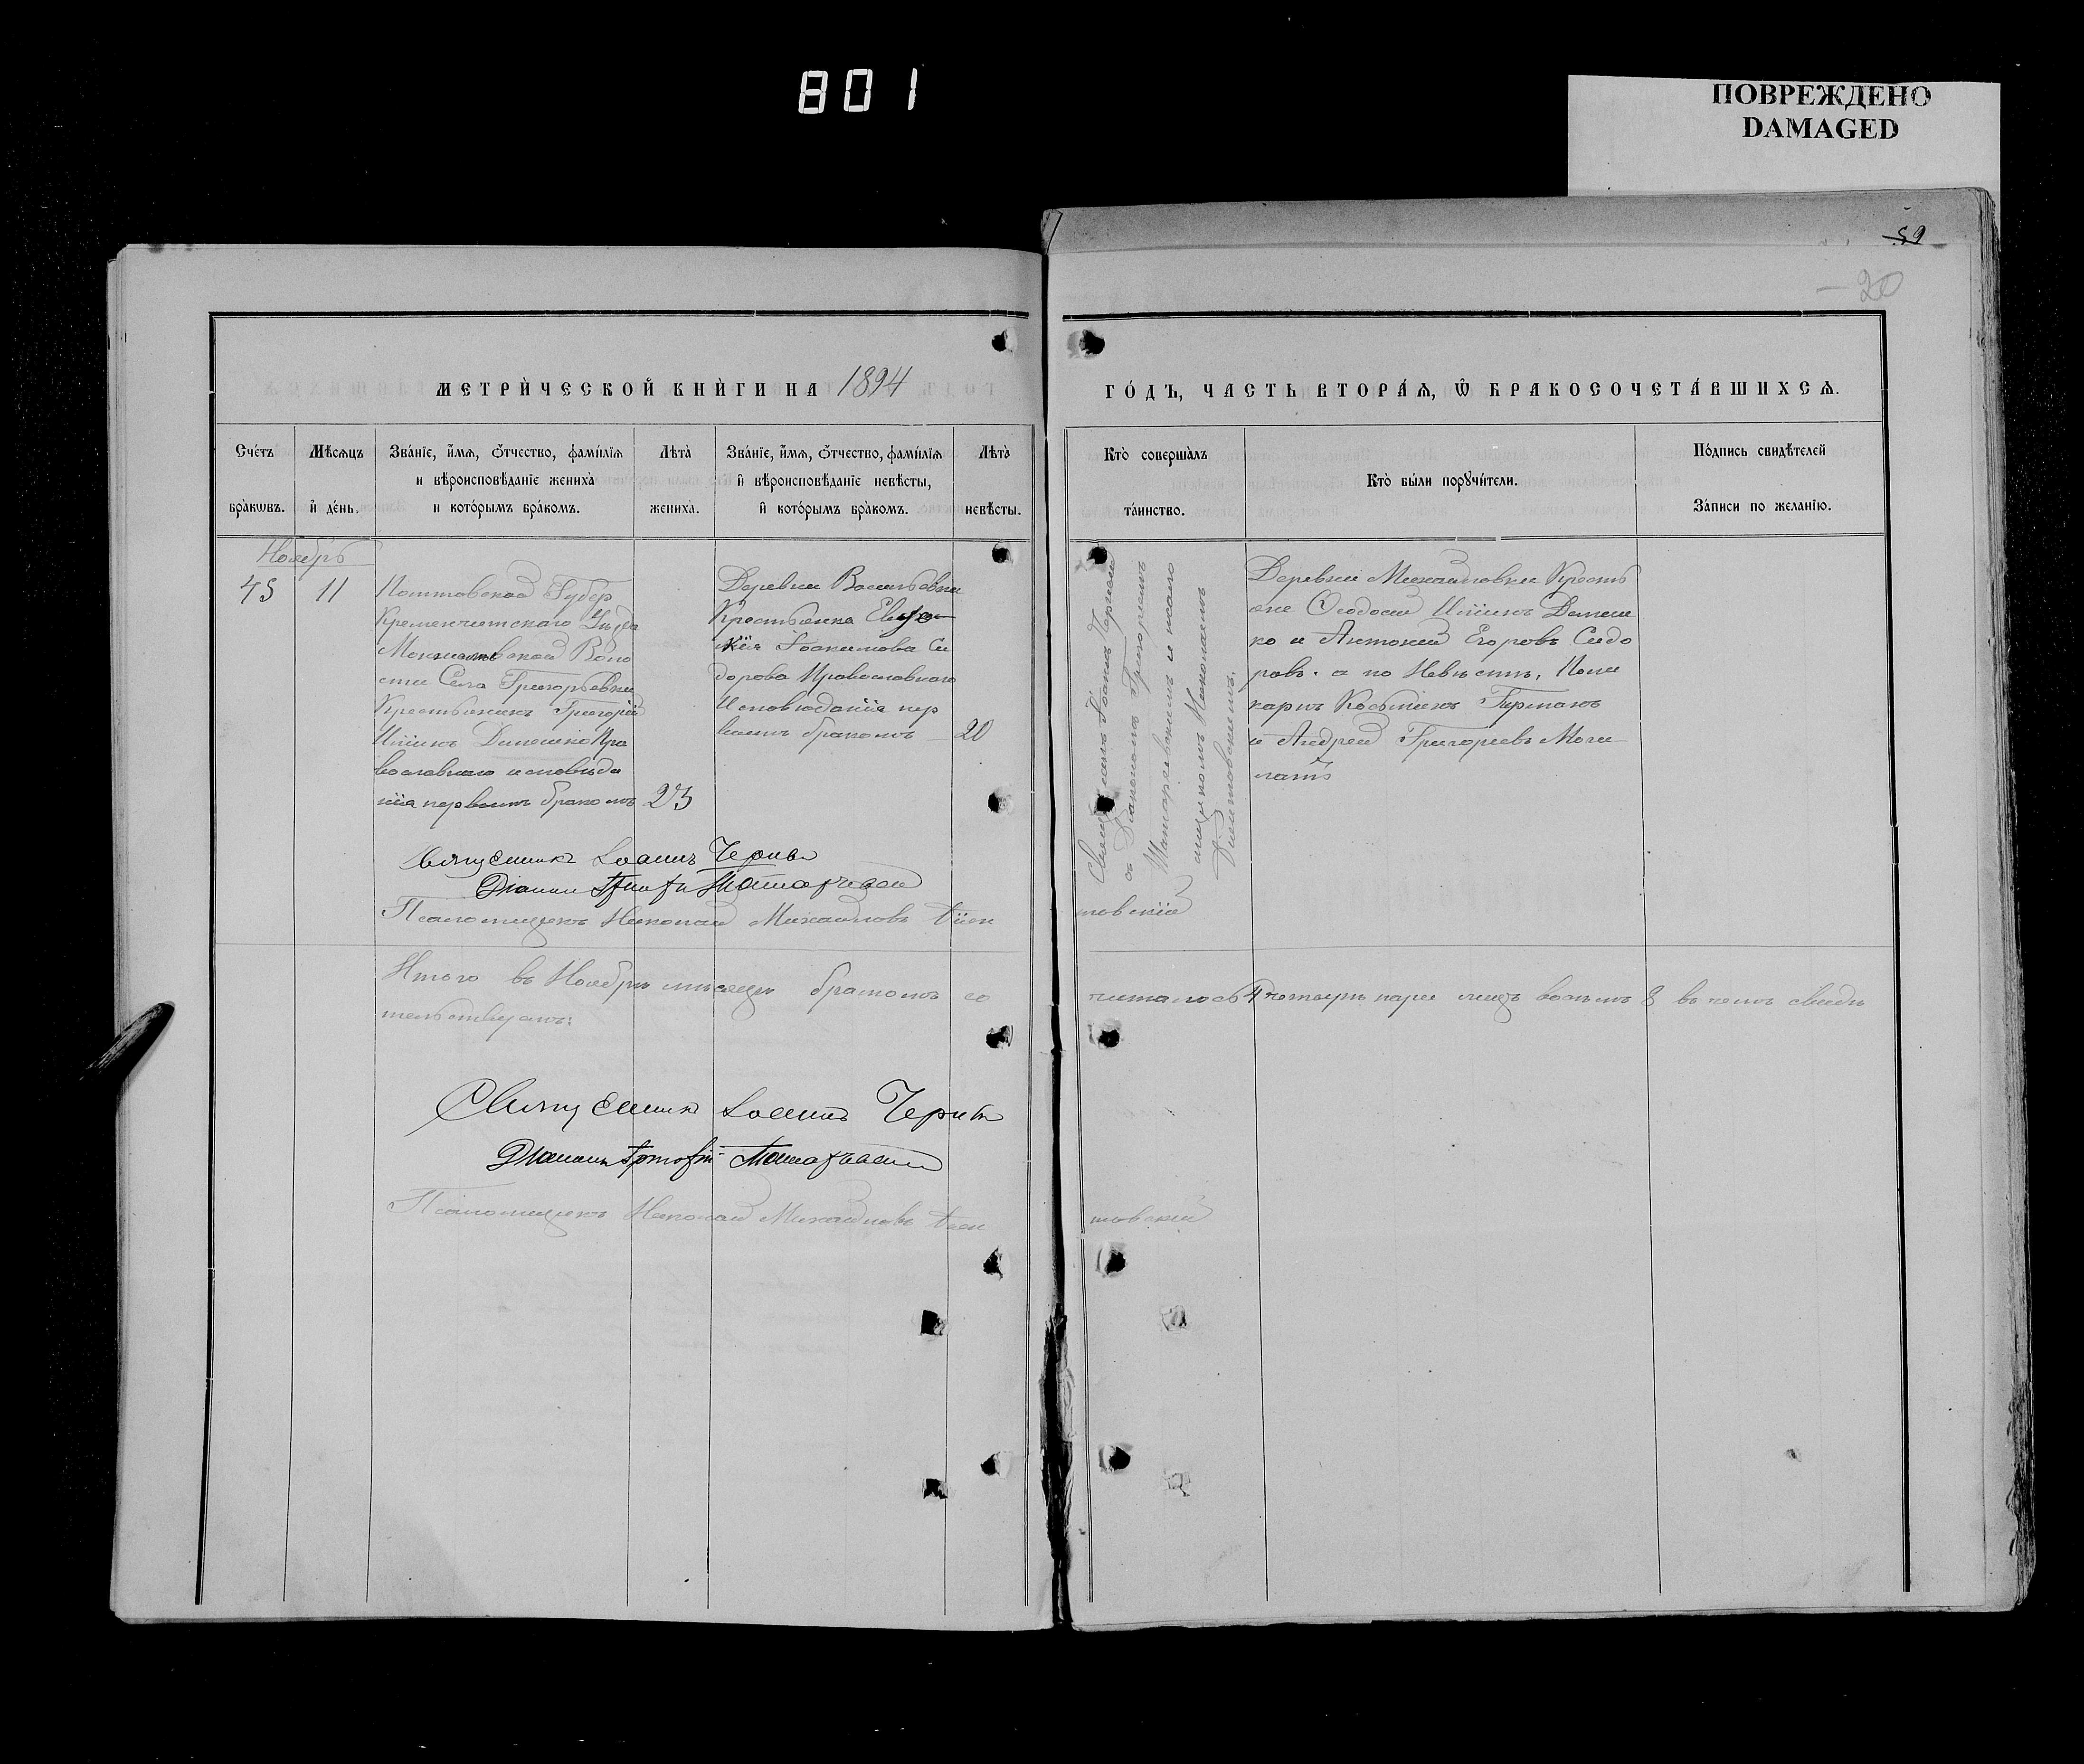 801
ПОВРЕЖДЕНО
DAMAGED
59
20
МЕТРИ́ЧЕСКОЙ КНИ́ГИ НА 1894
ГО́ДЪ, ЧАСТЬ ВТОРА́Ѧ, Ѿ БРАКОСОЧЕТА́ВШИХСѦ.
Сче́тъ бра́кѡвъ.
Мѣ́сѧцъ и҆ де́нь.
Зва́нїе, и҆́мѧ, ѻ҆́тчество, фамѝлїѧ
и вѣроисповѣ́данїе жениха̀
и кото́рымъ бра́комъ.
Лѣта̀ жениха̀.
Зва́нїе, и҆́мѧ, ѻ҆́тчество, фамѝлїѧ
и҆ вѣроисповѣ́данїе невѣ́сты,
и҆ кото́рымъ бра́комъ.
Лѣта̀ невѣ́сты.
Кто̀ соверша́лъ
та́инство.
Кто̀ бы́ли порꙋчи́тели.
По́дпись свидѣ́телей
За́писи по жела́нїю.
Ноябрь
45
11
Полтавской Губер
Кременчугскаго Уѣзда
Волости
Села Григорьевки
Крестьянинъ Григорій
Иліинъ Данешко Пра
вославнаго исповѣда
нія первымъ бракомъ
23
Деревни Васильевки
Крестьянка Евдо
кія Іоакимова Си
дорова Православнаго
Исповѣданія пер
вымъ бракомъ
20
Священникъ Іоаннъ
съ Діакономъ Григоріемъ
и псалом
щикомъ Николаемъ
Деревни Михайловки Кресть
яне Ѳеодосій Иліинъ Данеш
ко и Антоній Егоровъ Сидо
ровъ. а по Невѣстѣ, Поли
карпъ Косьминъ Германъ
и Андрей Григорьевъ Моги
латъ
Священникъ Іоаннъ
Діаконъ
Псаломщикъ Николай Михайловъ
товскій
Итого въ Ноябрѣ мѣсяцѣ бракомъ со
читалось 4 четыре пары лицъ восемь 8 въ чемъ свидѣ
тельствуемъ:
Священникъ Іоаннъ
Діаконъ
Псаломщикъ Николай Михайловъ
товскій